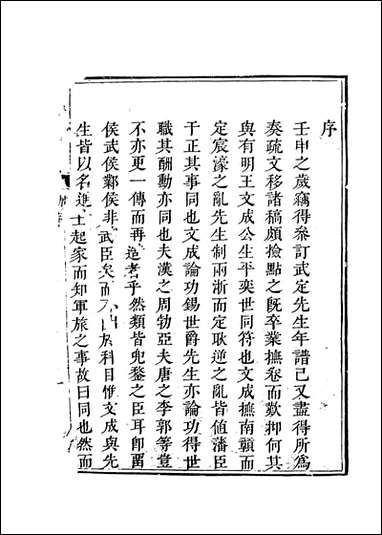 序
壬申之歲竊得叅訂武定先生年譜已又盡得所爲
奏疏文移諸稿頗撿點之旣卒業撫卷而歎抑何其
與有明王文成公生平奕世同符也文成撫南贛而
定宸濠之亂先生制兩浙而定耿逆之亂皆値藩臣
干正其事同也文成論功錫世爵先生亦論功得世
職其酬勳亦同也夫漢之周勃亞夫唐之李郭等豈
不亦更一傳而再造者乎然類皆兜鍪之臣耳卽畱
侯武侯鄴侯非武臣矣而不由於科目惟文成與先
生皆以名進士起家而知軍旅之事故曰同也然而